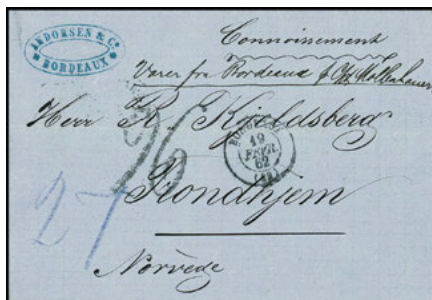 ANDORSEN & Co
BORDEAUX
Connoissement
Varer fra Bordeaux
Herr R. Kjeldsberg
26
19
FEVR.
62
Trondhjem
27
Norvège